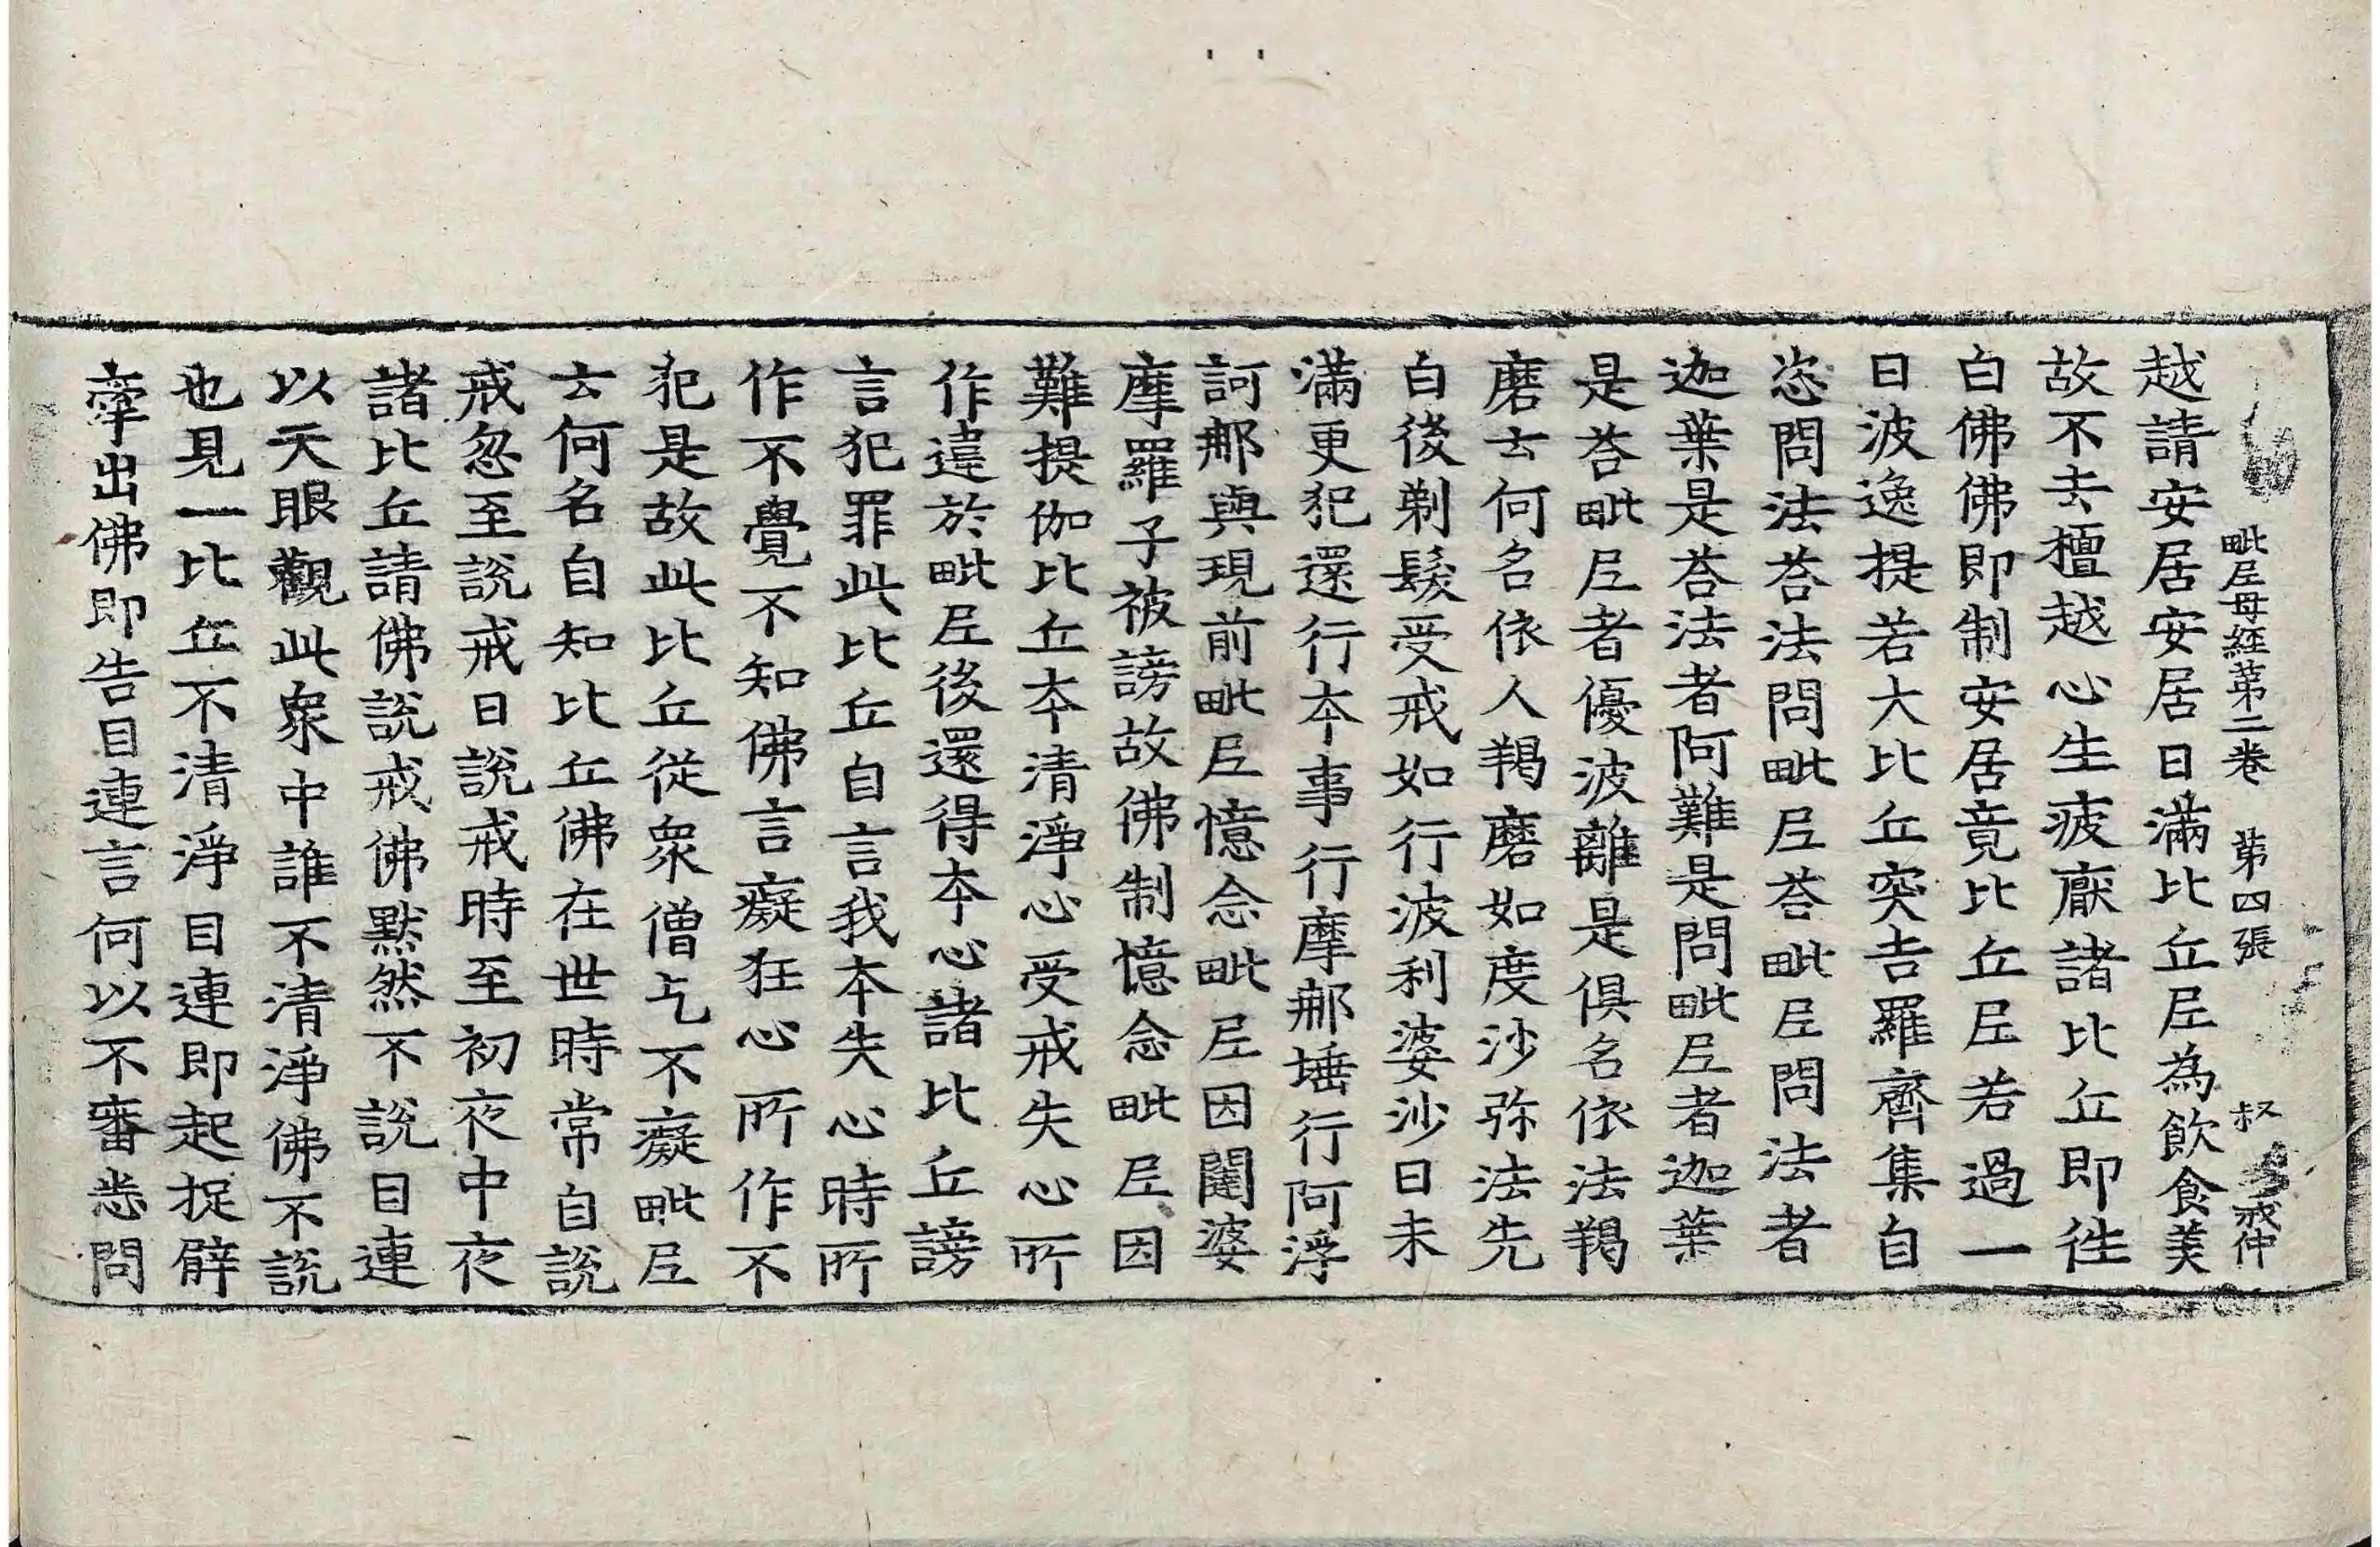 毗尼母經第二卷 第四張 叔
越請安居安居日滿比丘尼為飲食美
故不去檀越心生疲猒諸比丘即徃
白佛佛即制安居竟比丘尼若過一
日波逸提若大比丘突吉羅齊集自
恣問法荅法問毗尼荅毗尼問法者
迦葉是荅法者阿難是問毗尼者迦葉
是荅毗尼者優波離是俱名依法羯
磨云何名依人羯磨如度沙弥法先
白後剃髮受戒如行波利婆沙日未
滿更犯還行本事行摩那埵行阿浮
訶那與現前毗尼憶念毗尼因闥婆
摩羅子被謗故佛制憶念毗尼因
難提伽比丘本清淨心受戒失心所
作違於毗尼後還得本心諸比丘謗
言犯罪此比丘自言我本失心時所
作不覺不知佛言癡狂心所作不
犯是故此比丘從衆僧乞不癡毗尼
云何名自知比丘佛在世時常自說
戒忽至說戒日說戒時至初夜中夜
諸比丘請佛說戒佛默然不說目連
以天眼觀此衆中誰不清淨佛不說
也見一比丘不清淨目連即起捉臂
牽出佛即告目連言何以不審悉問